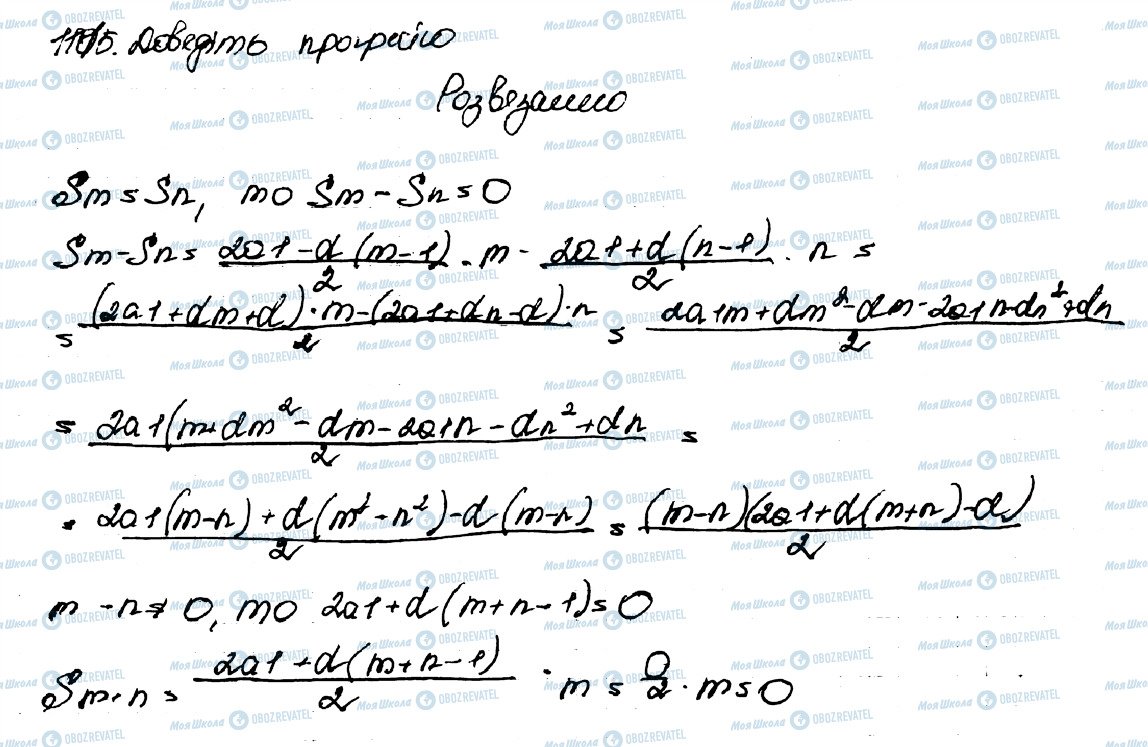 1115. Доведіть прогресію
Розвязанню
Sm = Sn, то Sm - Sn = 0
Sm - Sn = (2a1 - d(m-1))/2 · m - (2a1 + d(n-1))/2 · n =
= ((2a1 + dm + d) · m - (2a1 + dn - d) · n)/2 = (2a1m + dm² - dm - 2a1n - dn² + dn)/2
= (2a1(m + dm² - dm - 2a1n - dn² + dn)/2 =
= (2a1(m-n) + d(m² - n²) - d(m-n))/2 = ((m-n)(2a1 + d(m+n) - d))/2
m - n ≠ 0, то 2a1 + d(m+n-1) = 0
Sm+n = (2a1 + d(m+n-1))/2 · m = 0/2 · m = 0